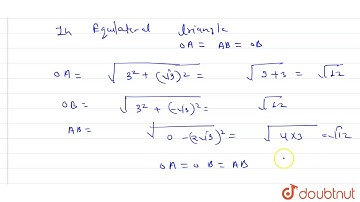 In Equilateral triangle
OA = AB = OB
OA = √3² + (√3)² = √9+3 = √12
OB = √3² + (-√3)² = √12
AB = √0 - (2√3)² = √4×3 = √12
OA = OB = AB
doubtnut